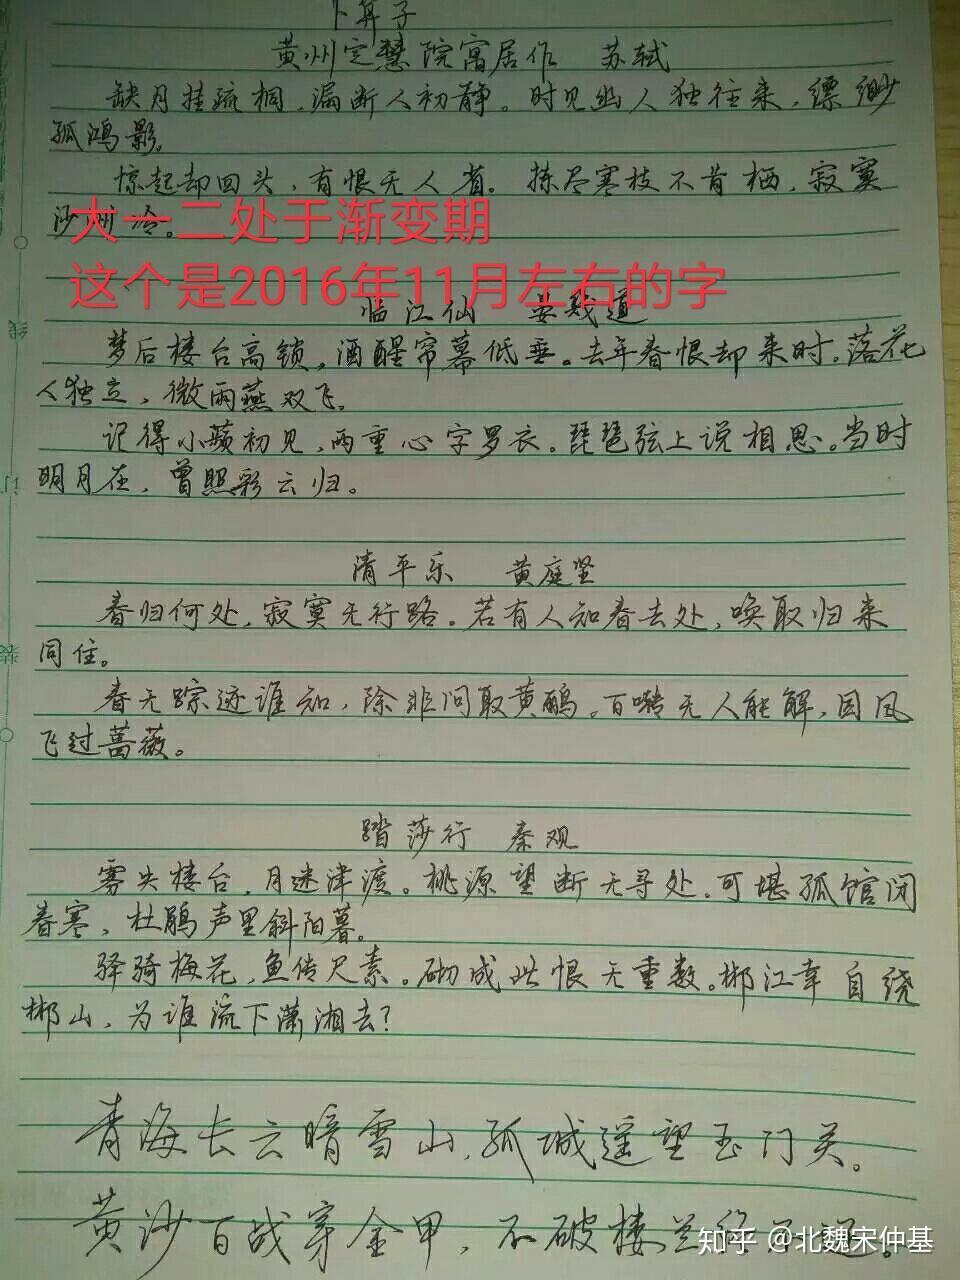 卜算子
黄州定慧院寓居作 苏轼
缺月挂疏桐，漏断人初静。时见幽人独往来，缥缈
孤鸿影。
惊起却回头，有恨无人省。拣尽寒枝不肯栖，寂寞
沙洲冷。
大一二处于渐变期
这个是2016年11月左右的字
临江仙 晏几道
梦后楼台高锁，酒醒帘幕低垂。去年春恨却来时，落花
人独立，微雨燕双飞。
记得小蘋初见，两重心字罗衣。琵琶弦上说相思。当时
明月在，曾照彩云归。
清平乐 黄庭坚
春归何处，寂寞无行路。若有人知春去处，唤取归来
同住。
春无踪迹谁知，除非问取黄鹂。百啭无人能解，因风
飞过蔷薇。
踏莎行 秦观
雾失楼台，月迷津渡。桃源望断无寻处，可堪孤馆闭
春寒，杜鹃声里斜阳暮。
驿骑梅花，鱼传尺素。砌成此恨无重数。郴江幸自绕
郴山，为谁流下潇湘去？
青海长云暗雪山，孤城遥望玉门关。
黄沙百战穿金甲，不破楼兰终不还。
知乎 @北魏宋仲基
线
订
装